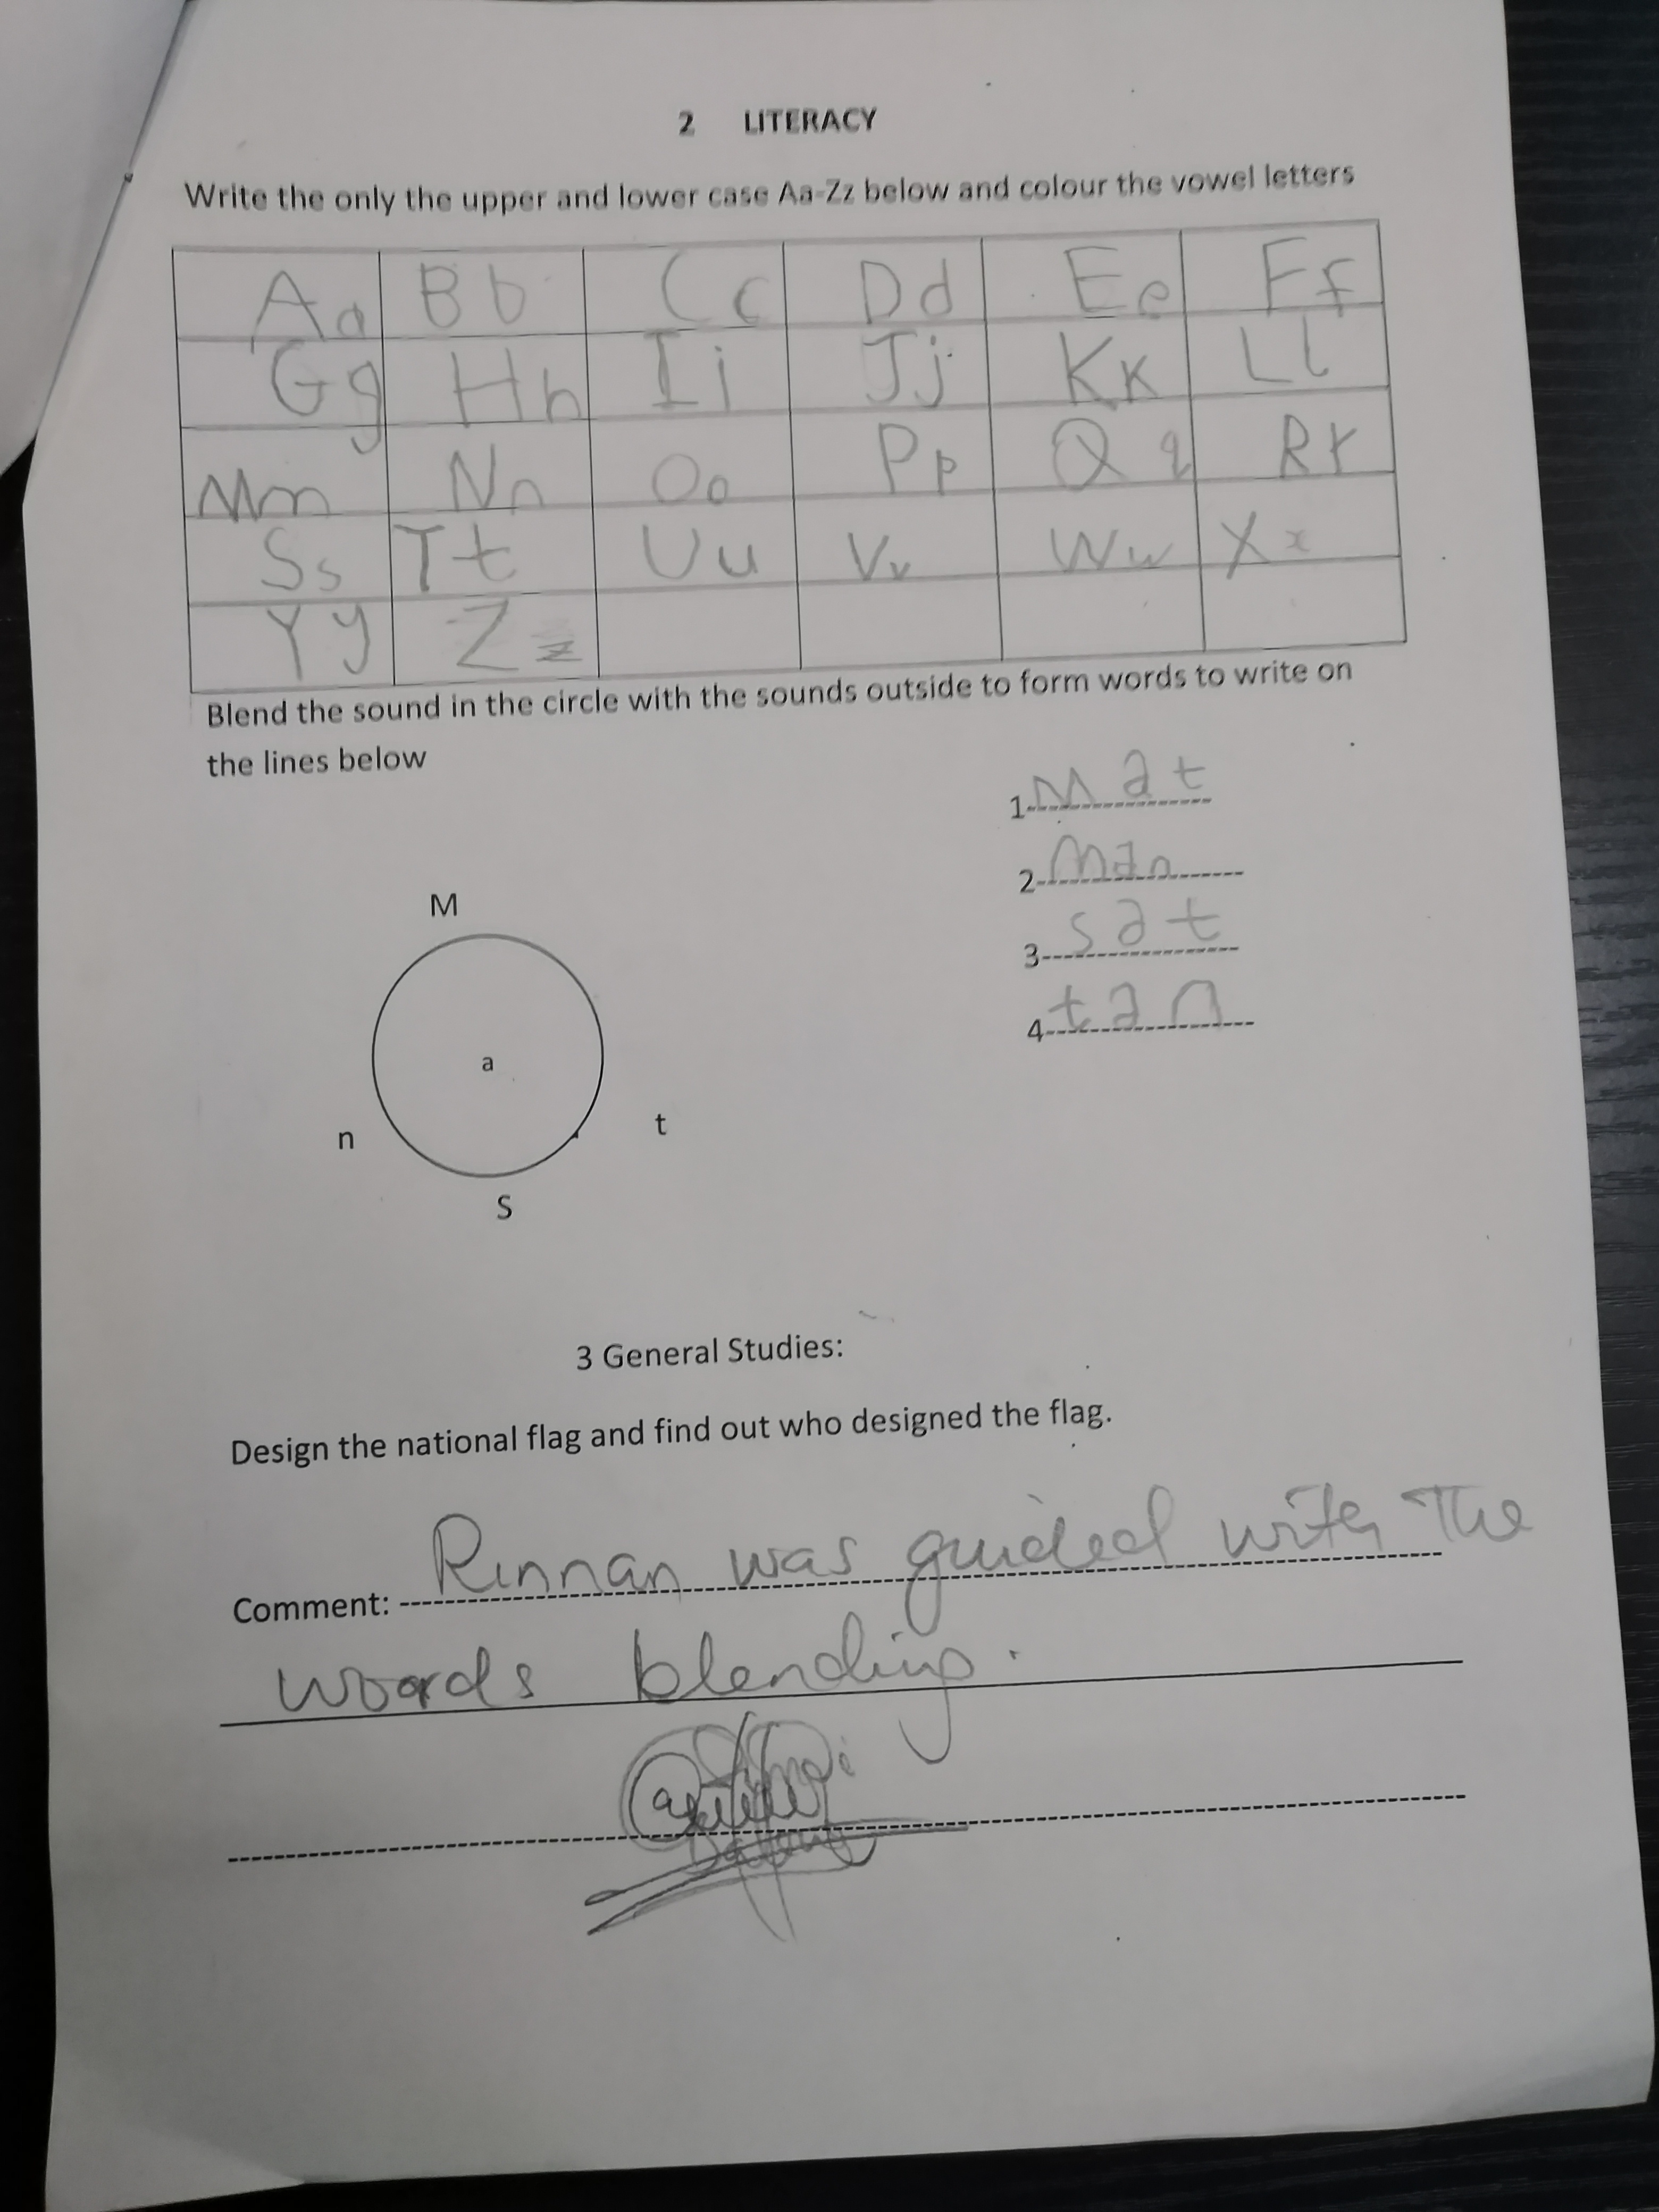 2 LITERACY
Write the only the upper and lower case Aa-Zz below and colour the vowel letters
Aa Bb Cc Dd Ee Ff
Gg Hh Ii Jj Kk Ll
Mm Nn Oo Pp Qq Rr
Ss Tt Uu Vv Ww Xx
Yy Zz
Blend the sound in the circle with the sounds outside to form words to write on
the lines below
1 mat
2 man
3 sat
4 tan
M
a
n
t
S
3 General Studies:
Design the national flag and find out who designed the flag.
Comment: Rinnan was guided with the
words blending.